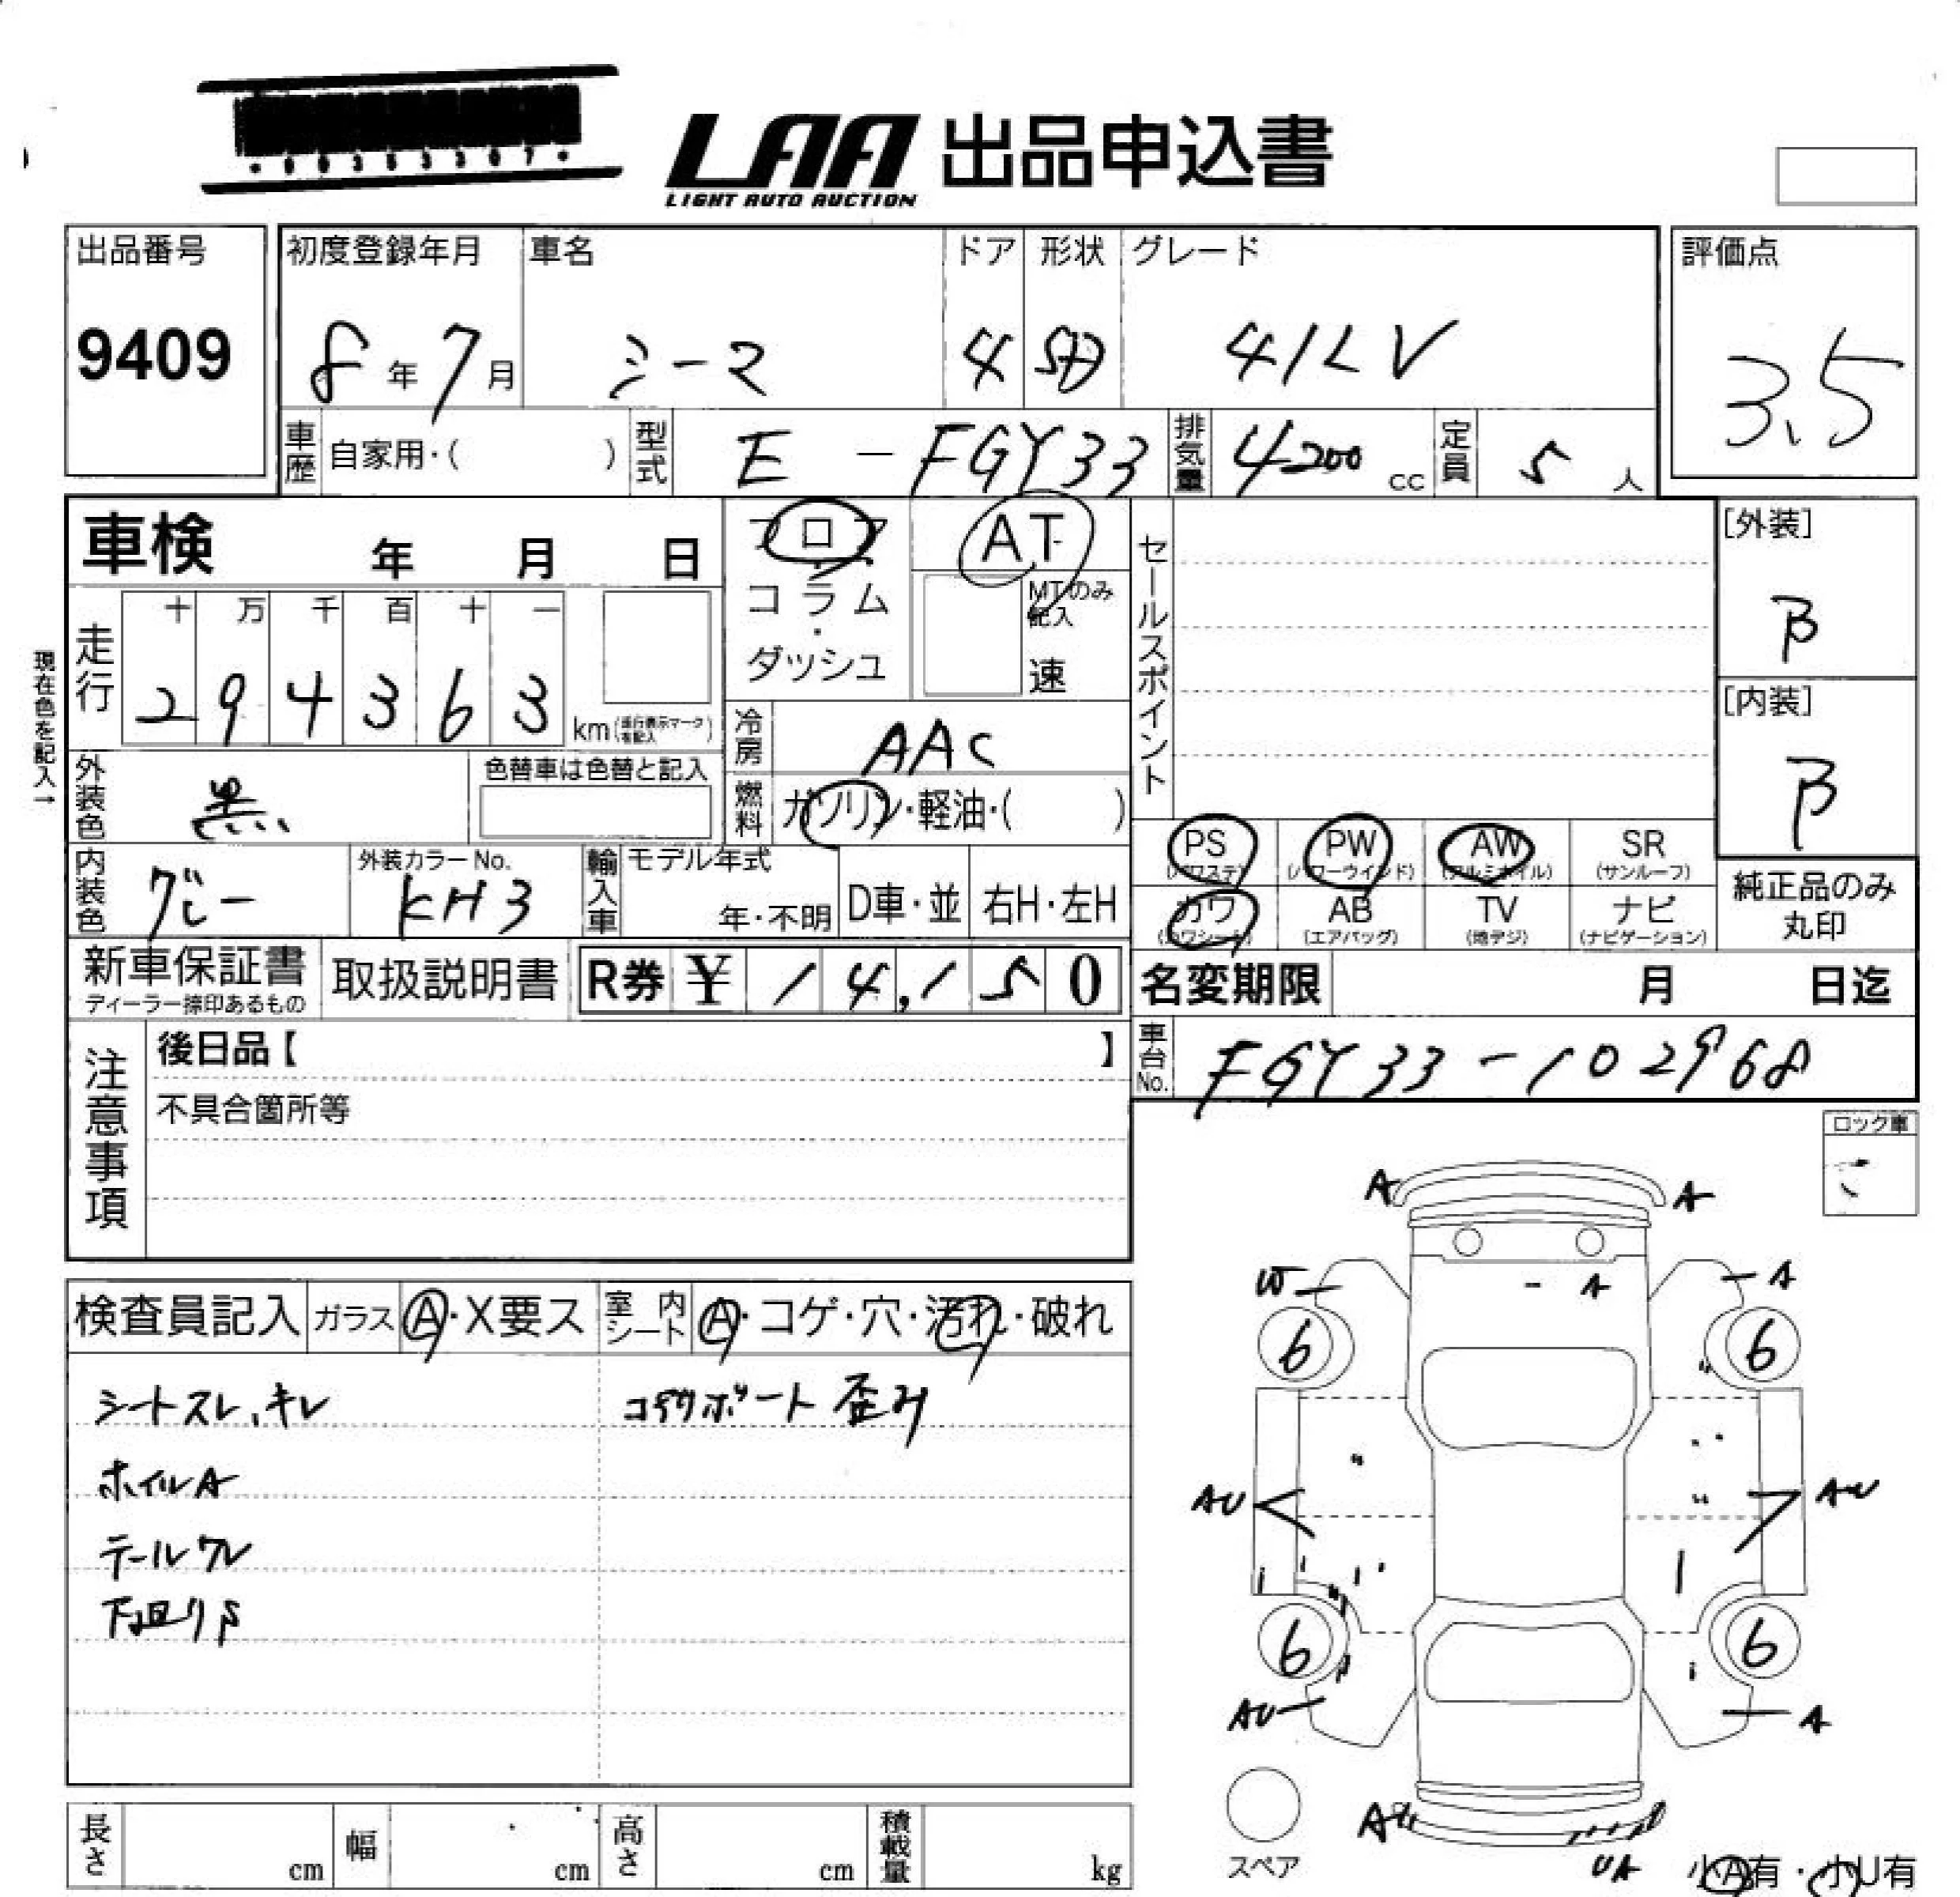 LAA 出品申込書
LIGHT AUTO AUCTION
出品番号 初度登録年月 車名 ドア 形状 グレード 評価点
9409 8年 7月 シーマ 4 SD 41LV 3.5
車歴 自家用・( ) 型式 E-FGY33 排気量 4200 cc 定員 5 人
車検 年 月 日 フロア AT セールスポイント [外装]
コラム・ダッシュ MTのみ記入 速 B
現在色を記入→
走行 十 万 千 百 十 一
2 9 4 3 6 3 km [内装]
冷房 AAC B
外装色 黒 色替車は色替と記入 燃料 ガソリン・軽油・( )
PS (パワステ) PW (パワーウインド) AW (アルミホイル) SR (サンルーフ)
内装色 グレー 外装カラーNo. KH3 輸入車 モデル年式 年・不明 D車・並 右H・左H
カワ (カワシート) AB (エアバッグ) TV (地デジ) ナビ (ナビゲーション) 純正品のみ丸印
新車保証書 ディーラー捺印あるもの 取扱説明書 R券 ¥ 14,150 名変期限 月 日迄
注意事項 後日品【 】 車台No. FGY33-102968
不具合箇所等 ロック車
A A
W A A
検査員記入 ガラス A・X要ス 室内シート A・コゲ・穴・汚れ・破れ
6 6
シートスレ、キレ
歪み
ホイルA
AU AU
テールワレ
下回りS
6 6
AU A
スペア
AU
UA 小A有・小U有
長さ cm 幅 cm 高さ cm 積載量 kg